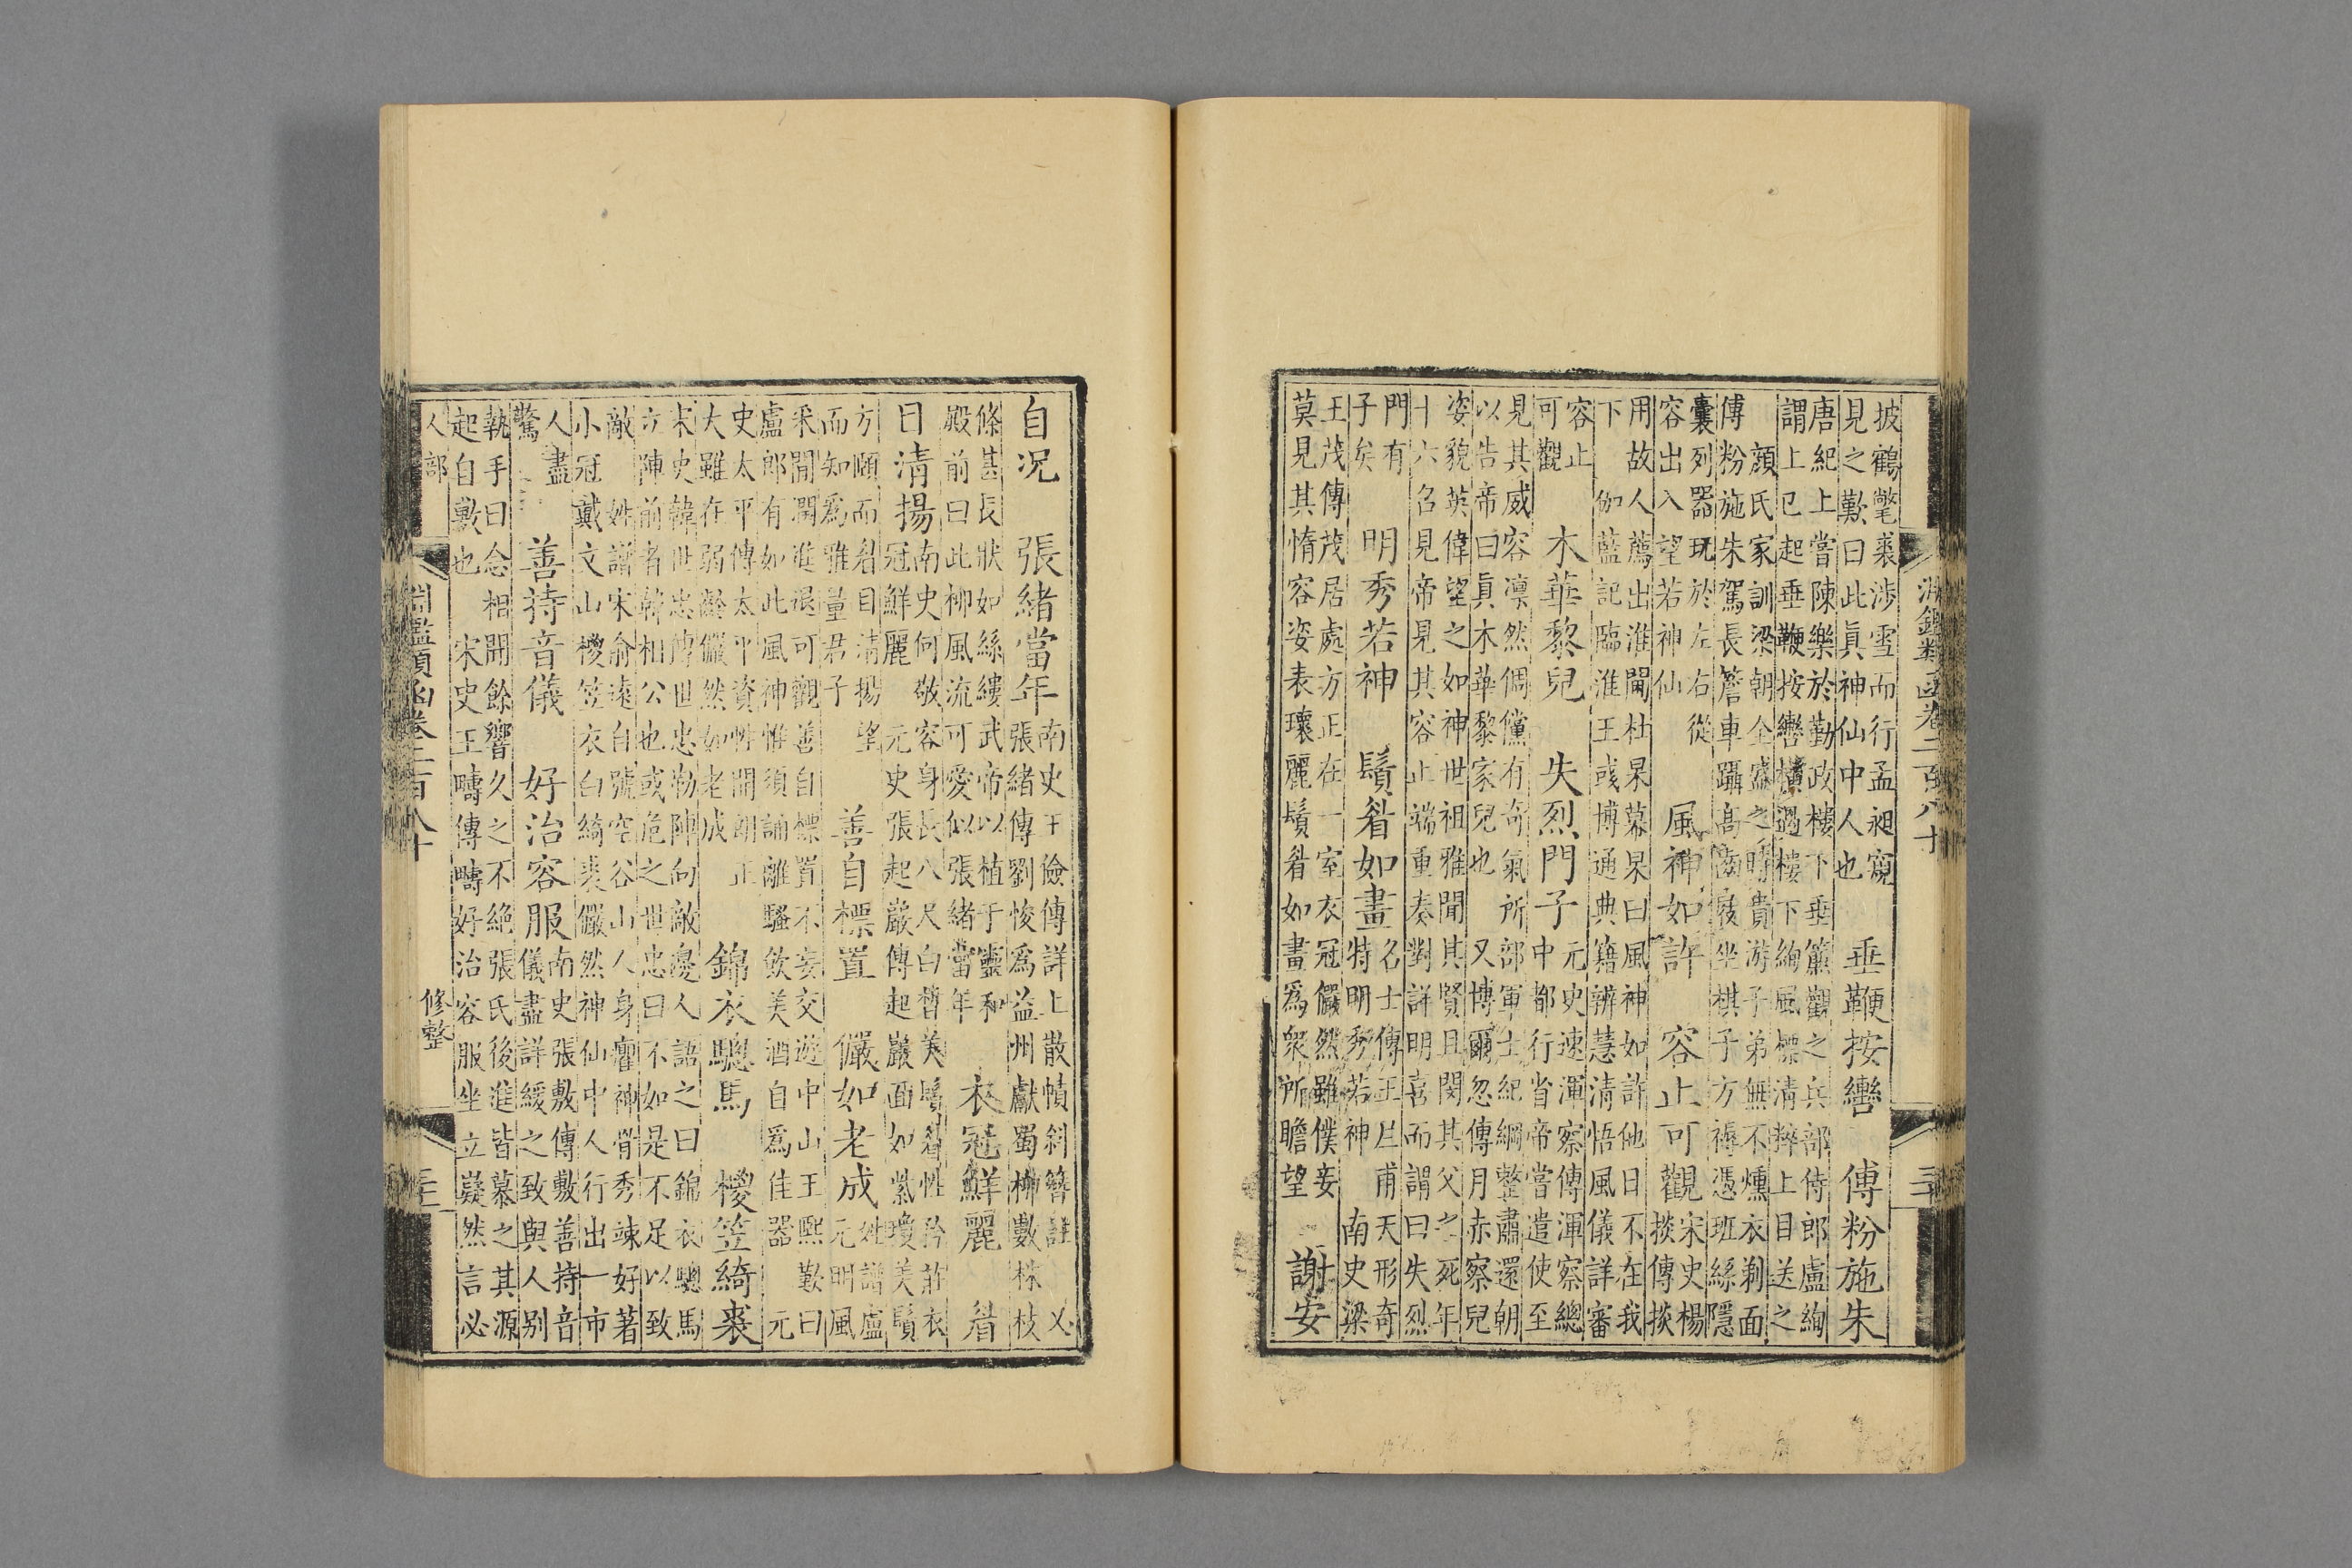 淵鑑類函卷二百八十 三十
披鶴氅裘涉雪而行孟昶窺
見之歎曰此眞神仙中人也
垂鞭按轡 傅粉施朱
唐紀上嘗陳樂於勤政樓下垂簾觀之兵部侍郎盧絢
謂上已起垂鞭按轡橫過樓下絢風標清粹上目送之
顏氏家訓梁朝全盛之時貴游子弟無不燻衣剃面
傅粉施朱駕長簷車躡高齒屐坐棋子方褥憑班絲隱
囊列器玩於左右從
容出入望若神仙
風神如許 容止可觀
宋史楊
掞傳掞
用故人薦出淮閫杜杲幕杲曰風神如許他日不在我
下 伽藍記臨淮王彧博通典籍辨慧清悟風儀詳審
容止
可觀
木華黎兒 失烈門子
元史速渾察傳渾察總
中都行省帝當遣使至
見其威容凛然倜儻有奇氣所部軍士紀綱整肅還朝
以告帝曰眞木華黎家兒也 又博爾忽傳月赤察兒
姿貌英偉望之如神世祖雅聞其賢且閔其父之死年
十六召見帝見其容止端重奏對詳明喜而謂曰失烈
門有
子矣
明秀若神 鬚眉如畫
名士傳王 甫天形奇
特明秀若神 南史梁
王茂傳茂居處方正在一室衣冠儼然雖僕妾
莫見其惰容姿表瓌麗鬚眉如畫爲衆所瞻望
謝安
自况 張緒當年
南史王儉傳詳上散幘斜簪註 又
張緒傳劉悛爲益州獻蜀柳數株枝
條甚長狀如絲縷武帝以植于靈和
殿前曰此柳風流可愛似張緒當年
衣冠鮮麗 眉
目清揚
南史何敬容身長八尺白皙美鬚眉性矜莊衣
冠鮮麗 元史張起巖傳起巖面如紫瓊美鬚
方頤而眉目清揚望
而知爲雅量君子
善自標置 儼如老成
姓譜盧
元明風
釆閒潤進退可觀善自標置不妄交遊中山王熙歎曰
盧郎有如此風神惟須誦離騷飲美酒自爲佳器 元
史太平傳太平資性開朗正
大雖在弱齡儼然如老成
錦衣驄馬 椶笠綺裘
宋史韓世忠傳世忠勒陣向敵邊人語之曰錦衣驄馬
立陣前者韓相公也或危之世忠曰不如是不足以致
敵 姓譜宋俞遠自號空谷山人身癯神骨秀竦好著
小冠戴文山椶笠衣白綺裘儼然神仙中人行出一市
人盡
驚
善持音儀 好治容服
南史張敷傳敷善持音
儀盡詳緩之致與人别
執手曰念相聞餘響久之不絶張氏後進皆慕之其源
起自敷也 宋史王疇傳疇好治容服坐立嶷然言必
人部 淵鑑類函卷二百八十 修整 三十一